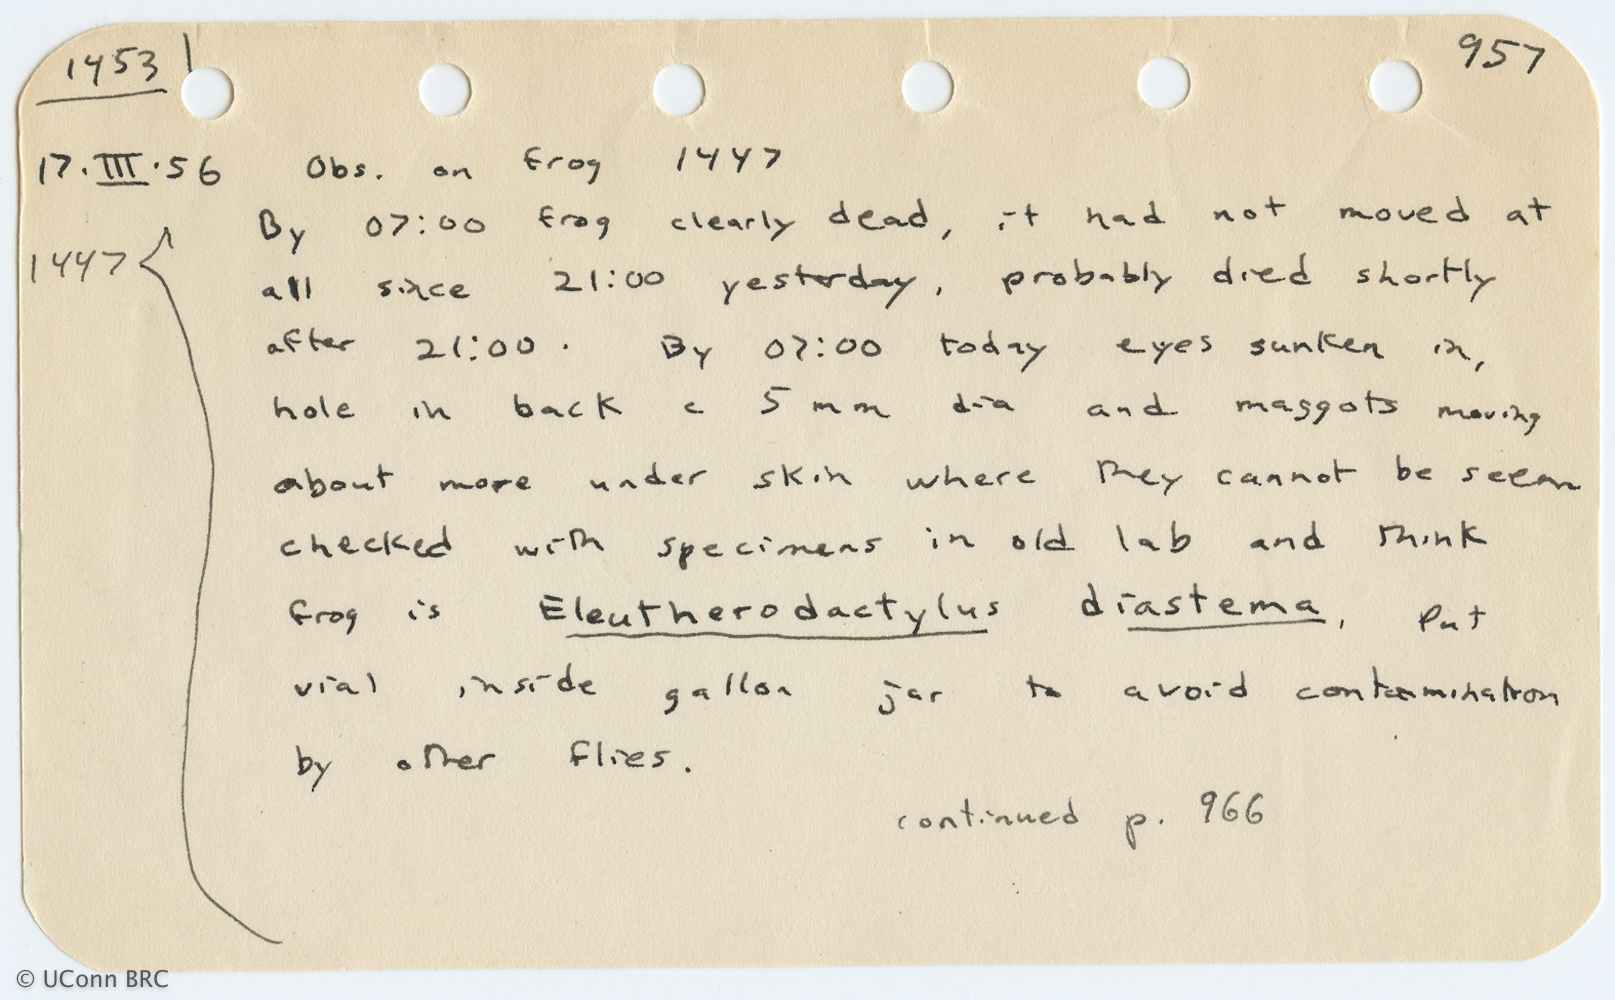 1453
957
17.III.56 Obs. on frog 1447
By 07:00 frog clearly dead, it had not moved at
1447
all since 21:00 yesterday, probably died shortly
after 21:00. By 07:00 today eyes sunken in,
hole in back c 5 mm dia and maggots moving
about more under skin where they cannot be seen
checked with specimens in old lab and think
frog is Eleutherodactylus diastema, Put
vial inside gallon jar to avoid contamination
by other flies.
continued p. 966
© UConn BRC